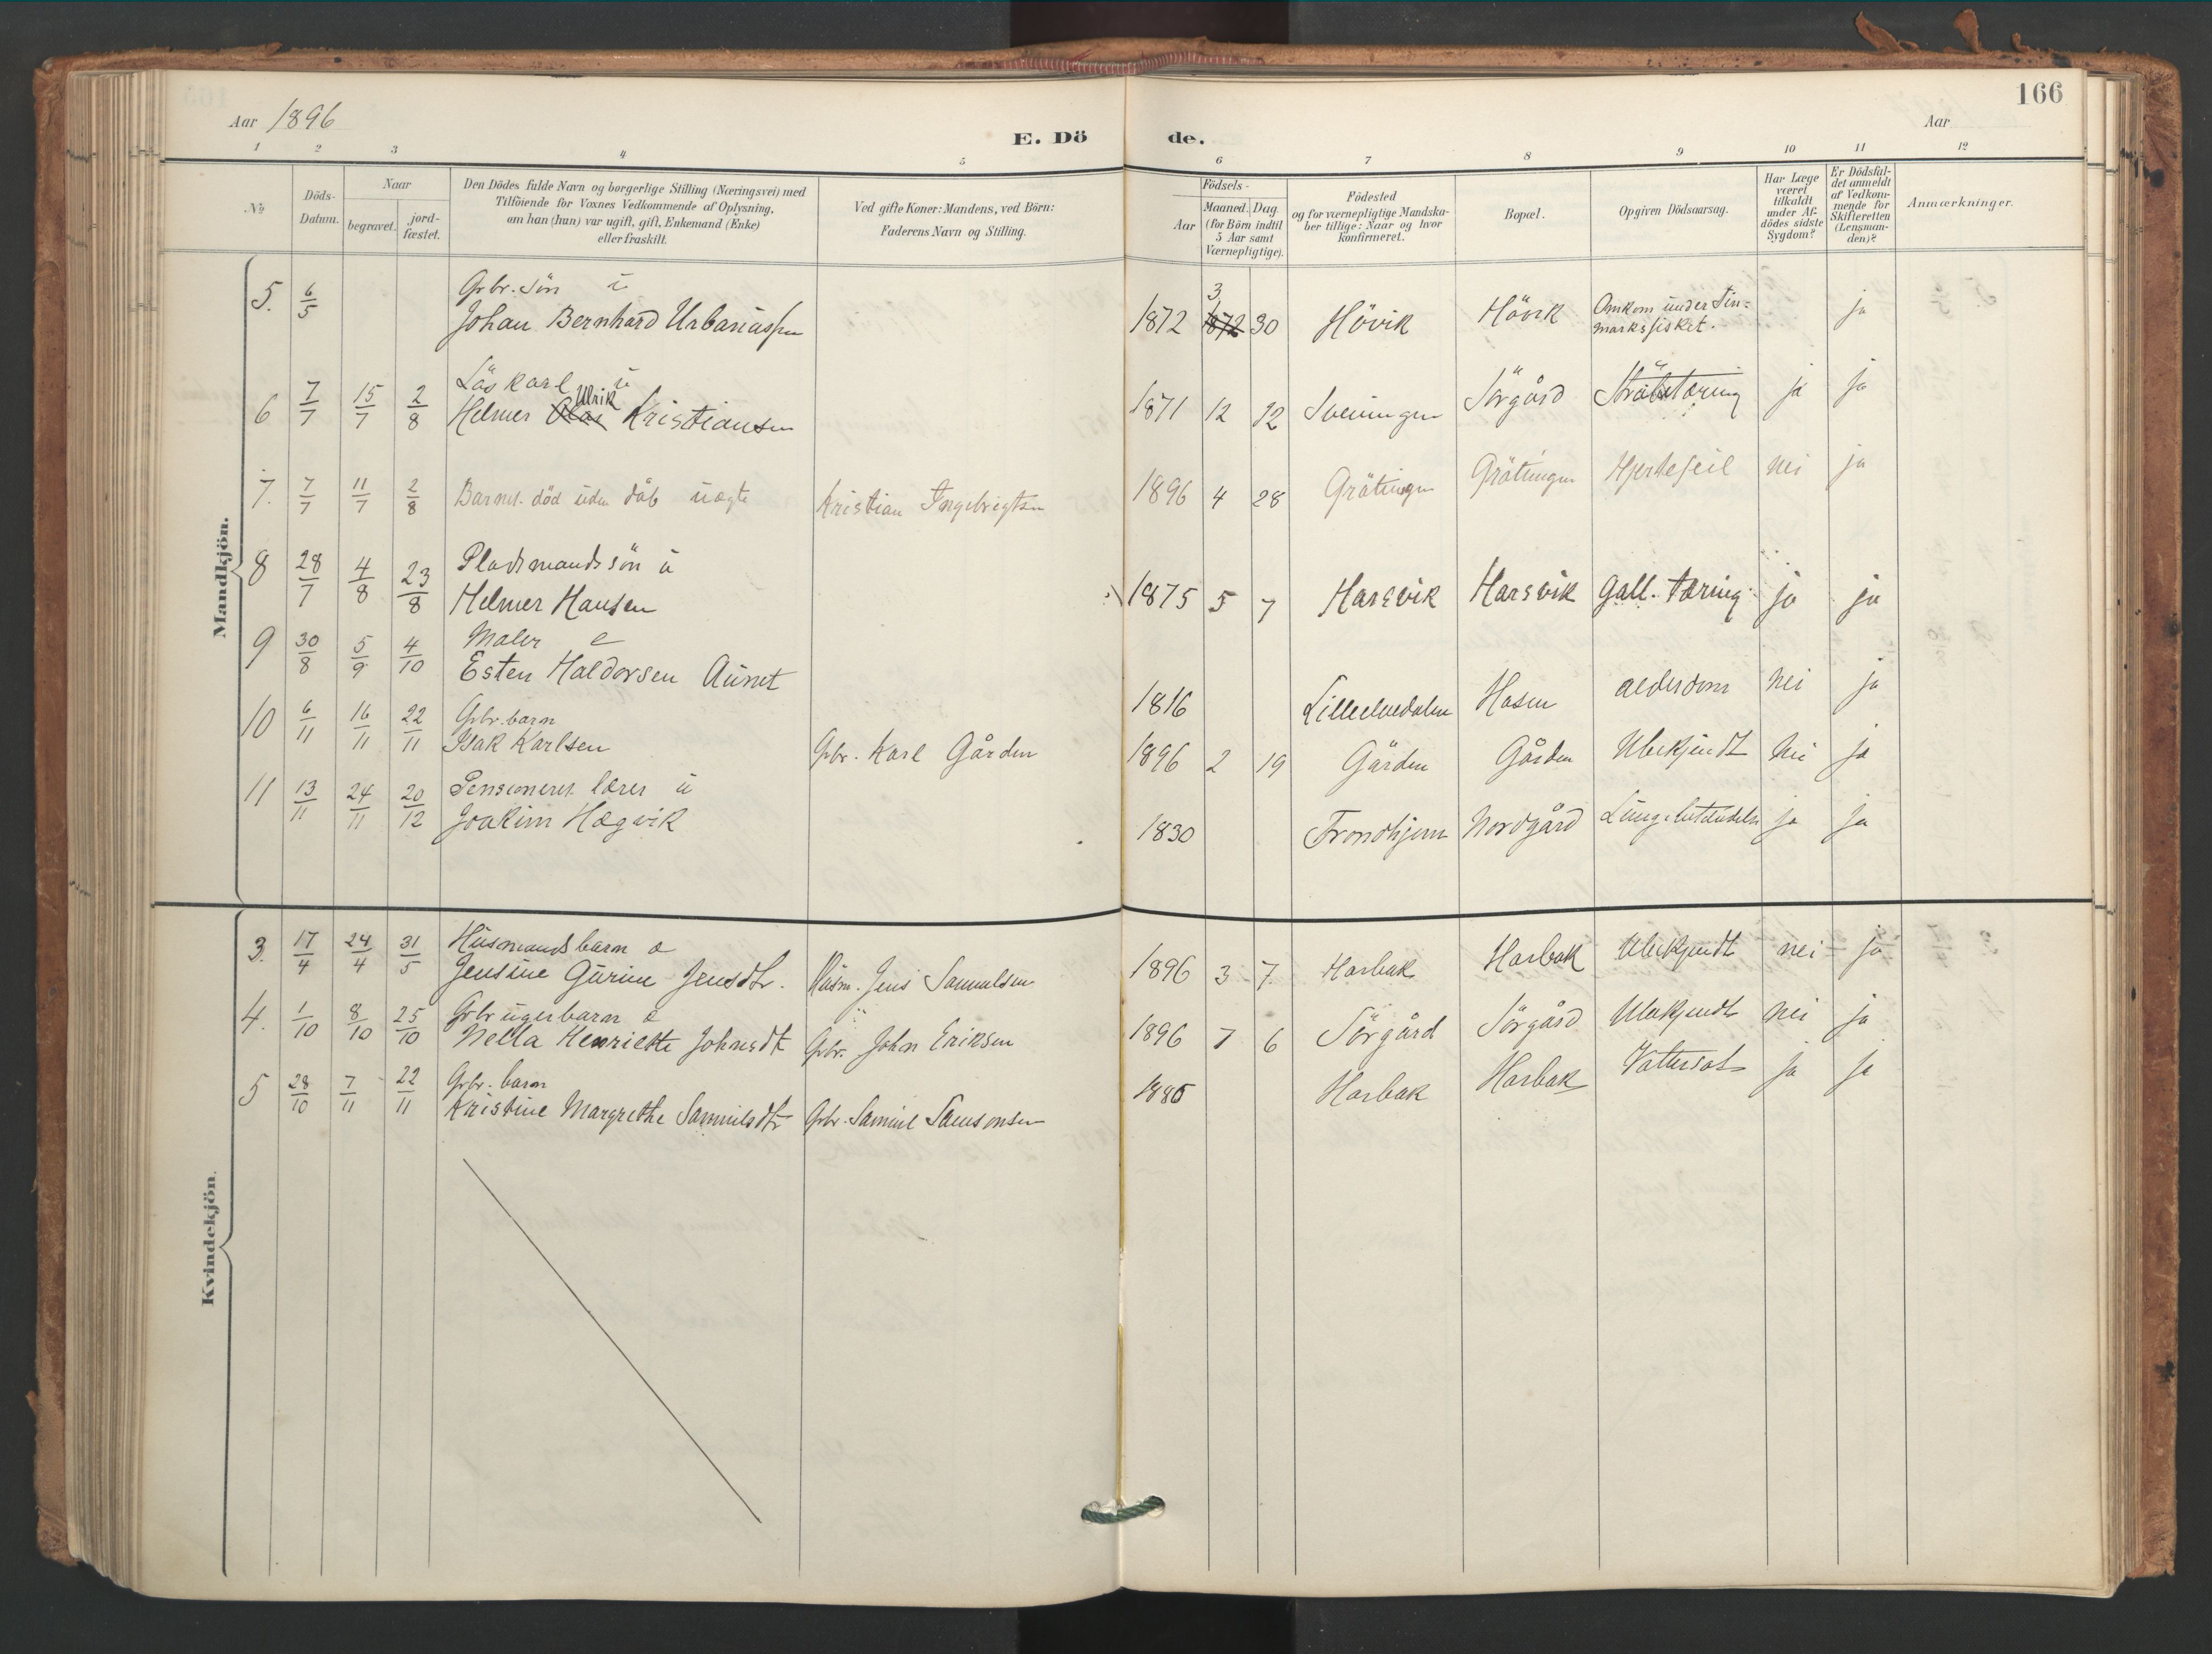 166
Aar 1896
E. Dö de.
Aar
1 2 3 4 5 6 7 8 9 10 11 12
№
Döds-
Datum.
Naar
begravet.
jord-
fæstet.
Den Dödes fulde Navn og borgerlige Stilling (Næringsvei) med
Tilföiende for Voxnes Vedkommende af Oplysning,
om han (hun) var ugift, gift, Enkemand (Enke)
eller fraskilt.
Ved gifte Koner: Mandens, ved Börn:
Faderens Navn og Stilling.
Födsels-
Aar
Maaned. Dag
(for Börn indtil
5 Aar samt
Værnepligtige).
Födested
og for værnepligtige Mandska-
ber tillige: Naar og hvor
konfirmeret.
Bopæl.
Opgiven Dödsaarsag.
Har Læge
været
tilkaldt
under Af-
dödes sidste
Sygdom?
Er Dödsfal-
det anmeldt
af Vedkom-
mende for
Skifteretten
(Lensman-
den)?
Anmærkninger.
Mandkjön.
5. 6/5 Grbr. sön ü
Johan Bernhard Urbanüssen
1872 1872 3 30 Hövik Hövik Omkom ünder Fin=
marksfisket. ja
6 7/7 15/7 2/8 Löskarl ü
Helmer Ulrik Kristiansen
1871 12 12 Sveningen Sörgård Strübetæring ja ja
7. 7/7 11/7 2/8 Barnet död üden dåb üægte Kristian Ingebrigtsen
1896 4 28 Grötingen Grötingen Hjertefeil nei ja
8 28/7 4/8 23/8 Pladsmandssön ü
Helmer Hansen
1875 5 7 Harsvik Harsvik Gall. tæring ja ja
9 30/8 5/9 4/10 Maler e
Esten Haldorsen Aünet
1816 Lilleelvedalen Hosen alderdom nei ja
10 6/11 16/11 22/11 Grbr. barn
Isak Karlsen Grbr. Karl Gården
1896 2 19 Gården Gården Übekjendt nei ja
11 13/11 24/11 20/12 Pensioneret lærer ü
Joakim Hægvik
1830 Trondhjem Nordgård ja ja
Kvindekjön.
3. 17/4 24/4 31/5 Hüsmands barn
Jensine Gürine Jensdtr. Hüsm. Jens Samuelsen
1896 3 7. Harbak Harbak Übekjendt nei ja
4. 1/10 8/10 25/10 Grbrügerbarn
Nella Henriette Johnsdt Grbr. John Eriksen
1896 7 6 Sörgård Sörgård Übekjendt nei ja
5 28/10 7/11 22/11 Grbr. barn
Kristine Margrethe Samüelsdtr Grbr. Samüel Samsonsen
1886 Harbak Harbak Vattersot ja ja